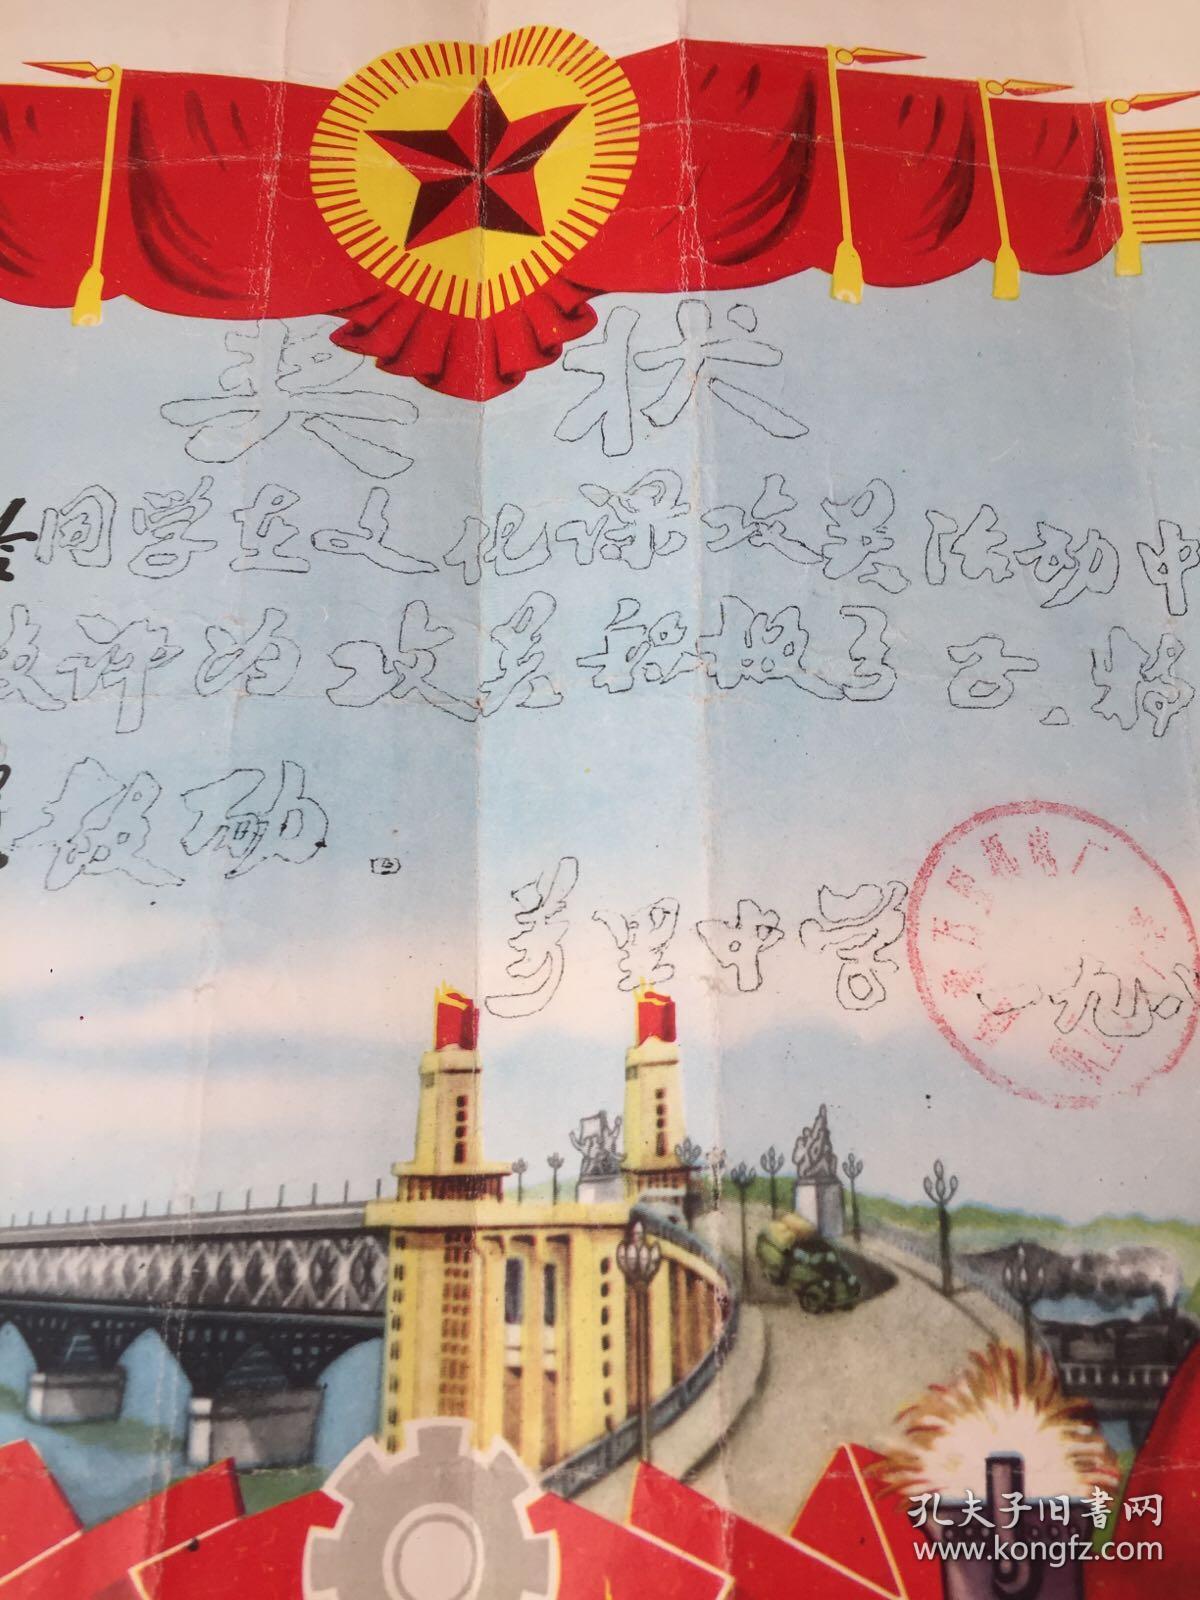 奖状
同学在文化课攻关活动中
被评为攻关积极分子、特
鼓励。
中学
一九八
孔夫子旧書网
www.kongfz.com